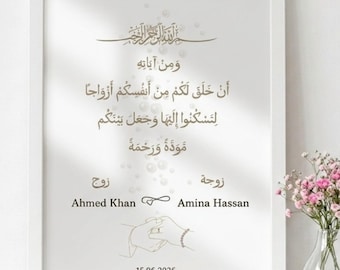 بسم الله الرحمن الرحيم
وَمِنْ آيَاتِهِ
أَنْ خَلَقَ لَكُمْ مِنْ أَنْفُسِكُمْ أَزْوَاجًا
لِتَسْكُنُوا إِلَيْهَا وَجَعَلَ بَيْنَكُم
مَوَدَّةً وَرَحْمَةً
زوج زوجة
Ahmed Khan Amina Hassan
15.06.2026